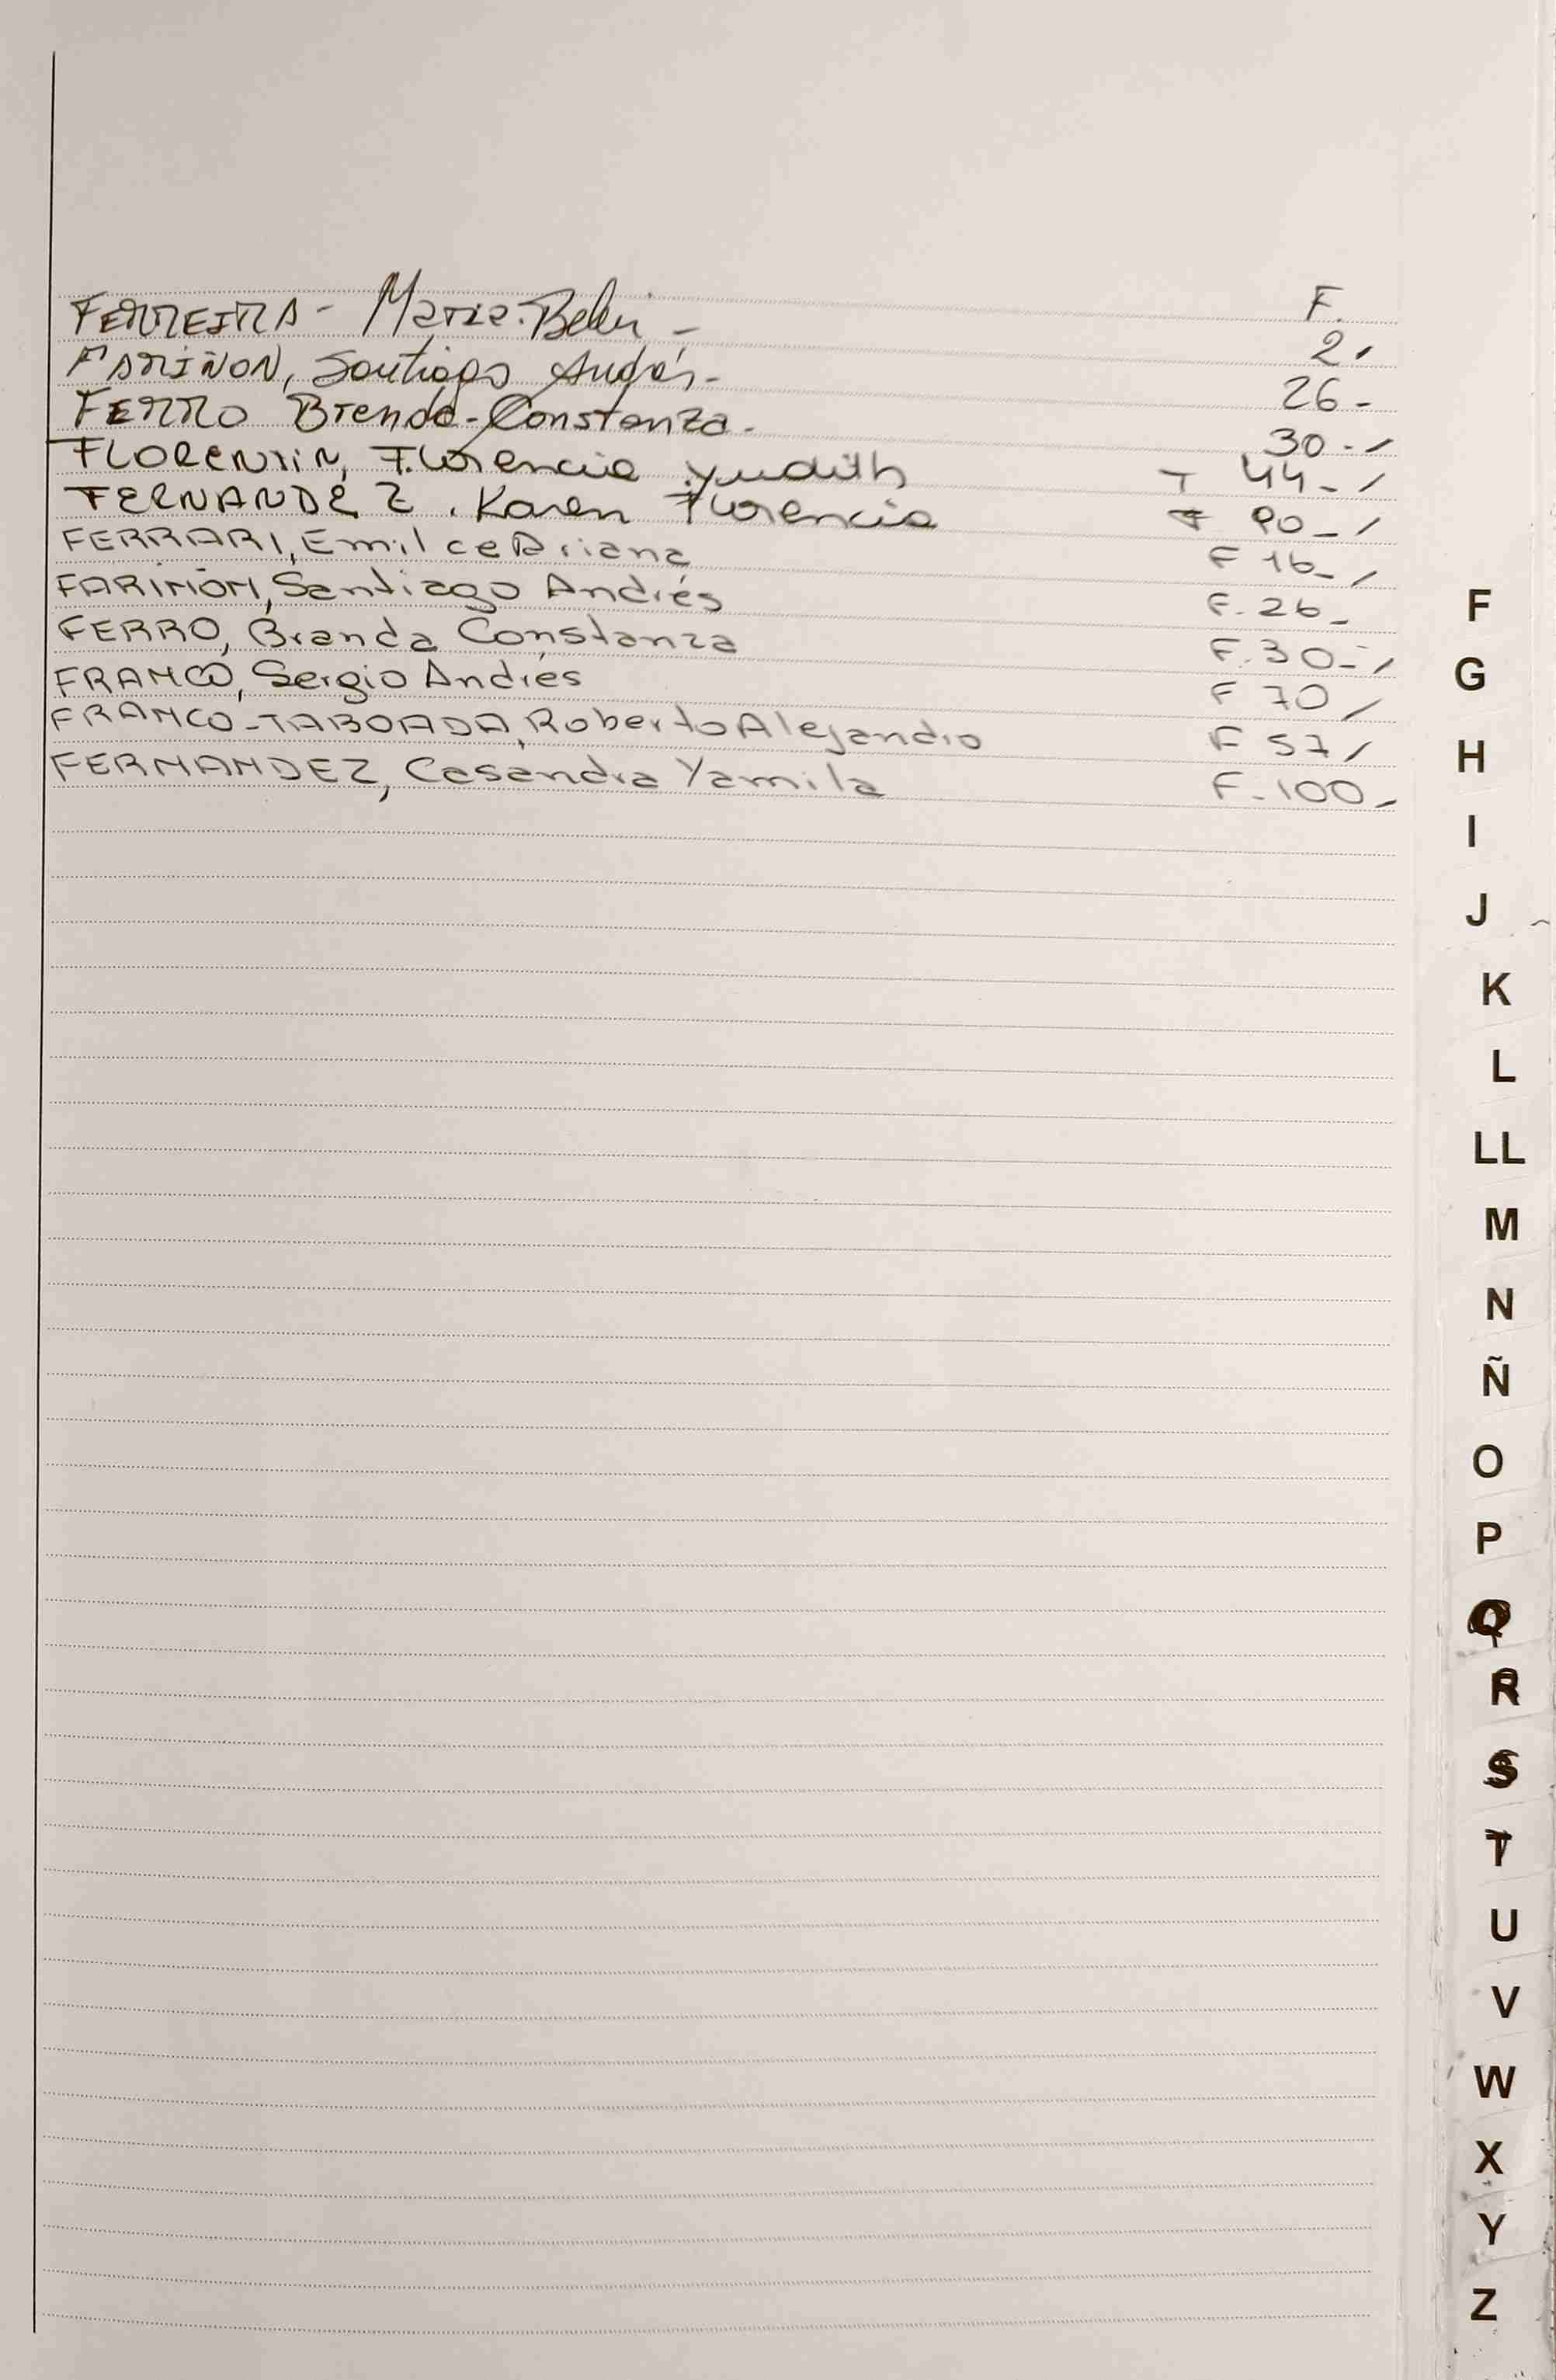 F.
FERREIRA - Maria Belen - 2.
FARIÑON, Santiago Andrés - 26 -
FERRO Brenda - Constanza - 30 - /
FLORENTIN, Florencia Yudith F 44 - /
FERNANDEZ. Karen Florencia F 90 - /
FERRARI, Emilce Ariana F 16 - /
FARIÑON, Santiago Andrés F. 26 -
FERRO, Branda Constanza F. 30 - /
FRANCO, Sergio Andrés F 70 /
FRANCO - TABOADA, Roberto Alejandro F 57 /
FERNANDEZ, Casandra Yamila F - 100 -
F
G
H
I
J
K
L
LL
M
N
Ñ
O
P
Q
R
S
T
U
V
W
X
Y
Z